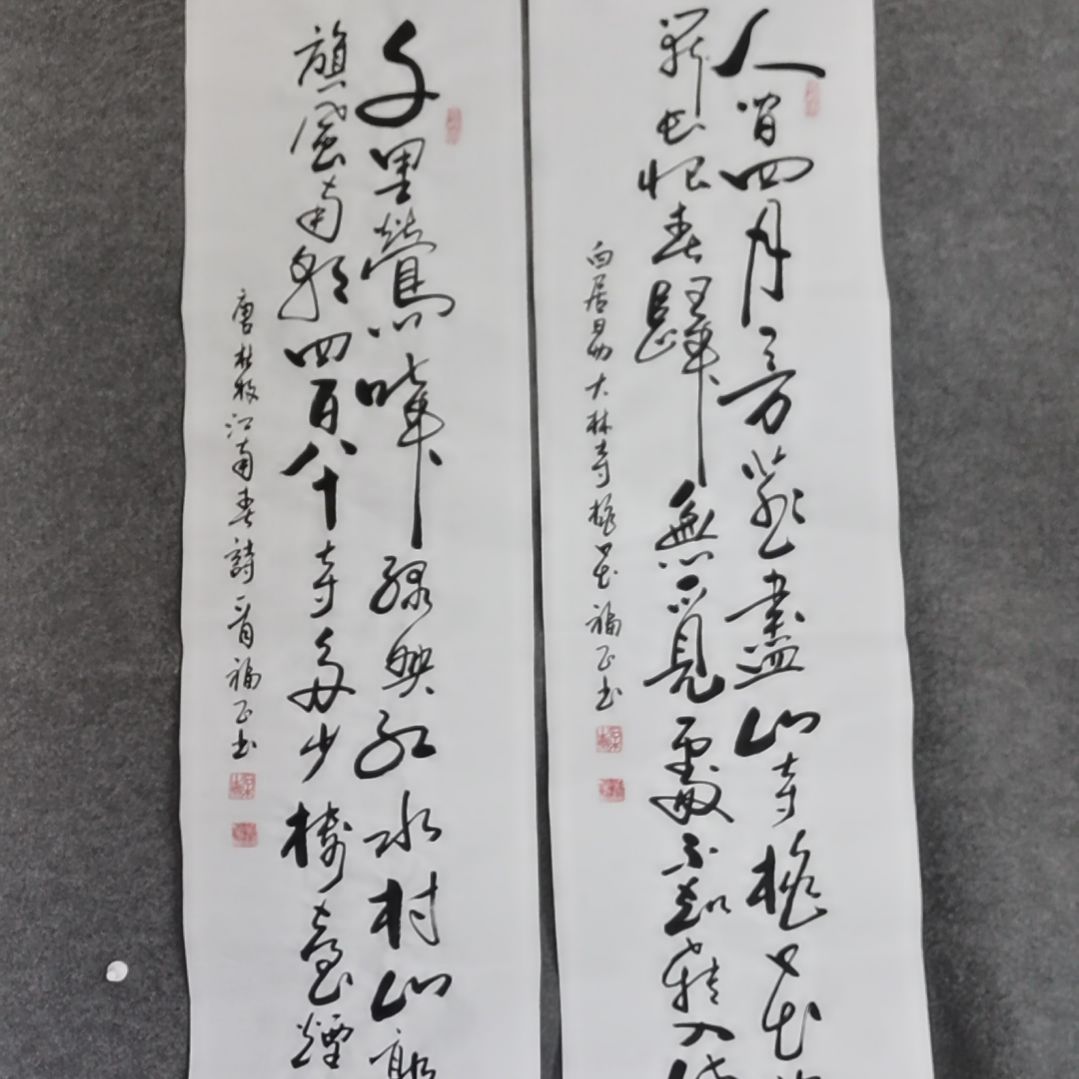 人間四月芳菲盡山寺桃花
開長恨春歸無覓處不知轉入
白居易大林寺桃花福正书
千里鶯啼緑映紅水村山郭
旗風南朝四百八十寺多少樓臺煙
唐杜牧江南春詩一首福正书